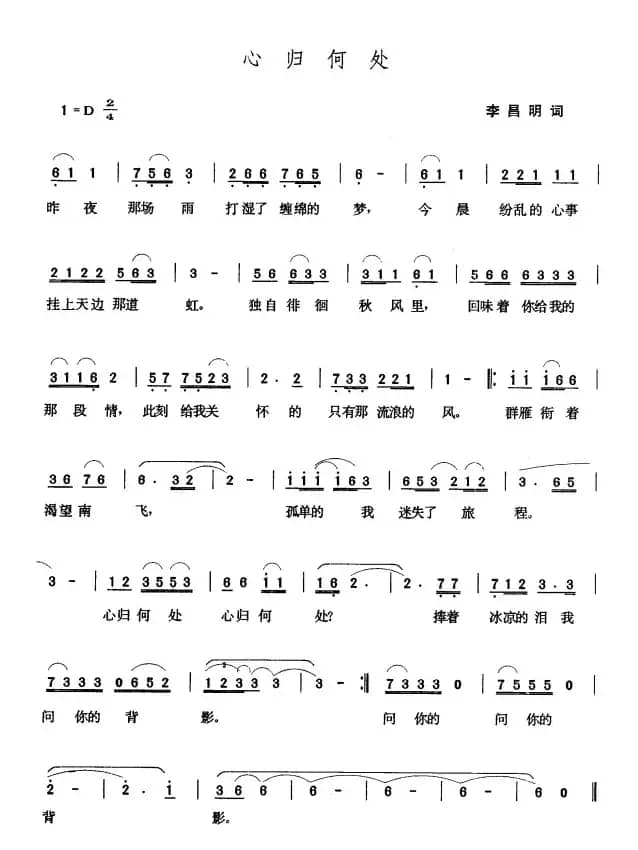 心归何处
1=D 2/4 李昌明 词
6 1 1 | 7 5 6 3 | 2 6 6 7 6 5 | 6 - | 6 1 1 | 2 2 1 1 1 |
昨夜 那场 雨 打湿了 缠绵的 梦, 今 晨 纷乱的 心事
2 1 2 2 5 6 3 | 3 - | 5 6 6 3 3 | 3 1 1 6 1 | 5 6 6 6 3 3 3 |
挂上天边 那道 虹。 独自 徘徊 秋风里, 回味着 你给我的
3 1 1 6 2 | 5 7 7 5 2 3 | 2 · 2 | 7 3 3 2 2 1 | 1 - |: i i i 6 6 |
那段情, 此刻 给我关 怀 的 只有那 流浪的 风。 群雁 衔着
3 6 7 6 | 6 · 3 2 | 2 - | i i i i 6 3 | 6 5 3 2 1 2 | 3 · 6 5 |
渴望 南 飞, 孤单的 我 迷失了 旅 程。
3 - | 1 2 3 5 5 3 | 6 6 i i | 1 6 2 · | 2 · 7 7 | 7 1 2 3 · 3 |
心归 何 处 心归 何 处? 捧着 冰凉的 泪 我
7 3 3 3 0 6 5 2 | 1 2 3 3 3 | 3 - :| 7 3 3 3 0 | 7 5 5 5 0 |
问 你的 背 影。 问 你的 问 你的
2 - | 2 · i | 3 6 6 6 | 6 - | 6 - | 6 - | 6 0 ||
背 影。